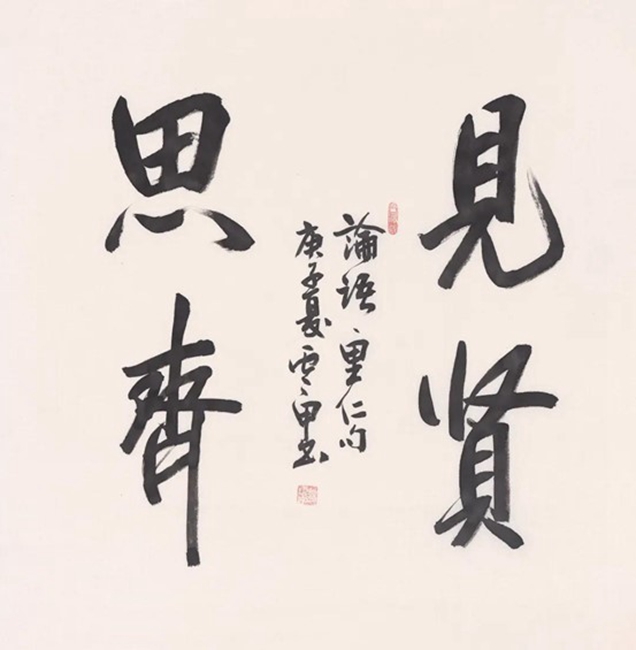 見賢
思齊
論語里仁句
庚子夏雲甲書